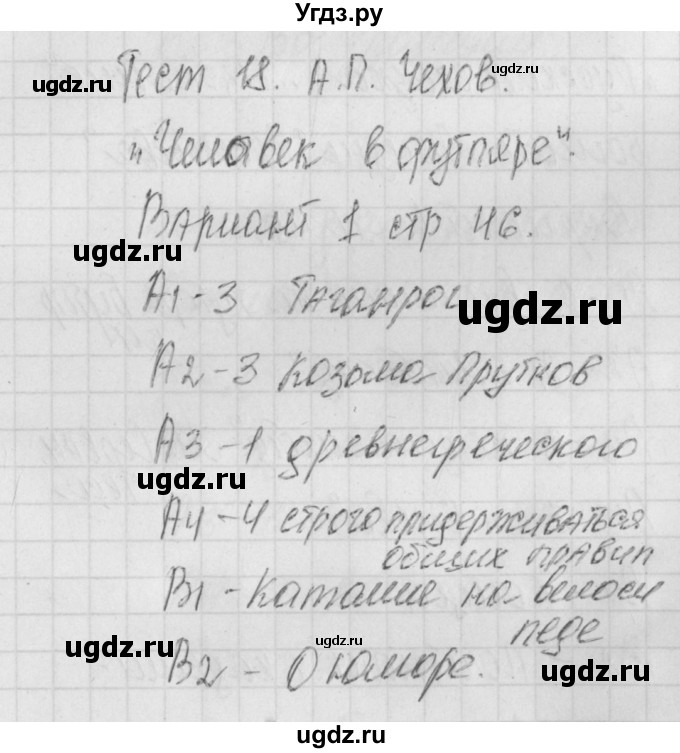 Угдз.ру
Тест 18. А.П. Чехов.
„Человек в футляре".
Вариант 1 стр 46.
А1 - 3 Таганрог
А2 - 3 Козьма Прутков
А3 - 1 древнегреческого
А4 - 4 строго придерживаться
общих правил
В1 - Катание на велоси
педе
В2 - О юморе.
ugdz.ru
ugdz.ru
ugdz.ru
ugdz.ru
ugdz.ru
ugdz.ru
ugdz.ru
ugdz.ru
ugdz.ru
ugdz.ru
ugdz.ru
ugdz.ru